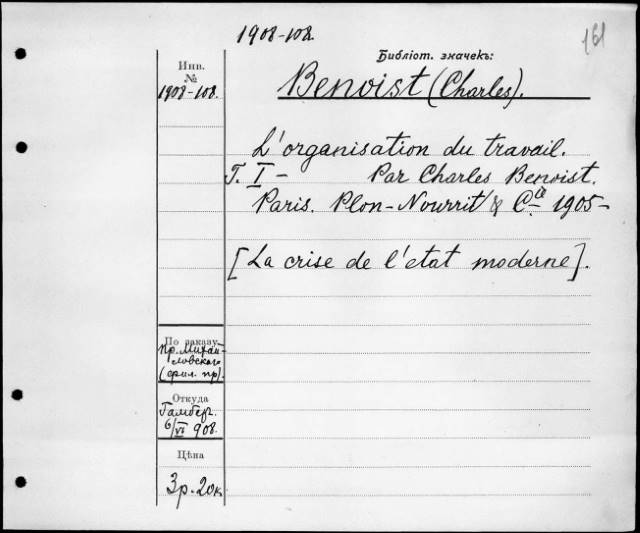 1908-108.
161
Библіот. значекъ:
Инв.
№
1908-108.
Benoist (Charles).
L'organisation du travail.
T. I - Par Charles Benoist.
Paris. Plon-Nourrit & Cie 1905-
[La crise de l'état moderne].
По заказу
пр. Михай-
ловскаго
(фил. пр).
Откуда
Гамбер.
6/VI 908.
Цѣна
3р. 20к